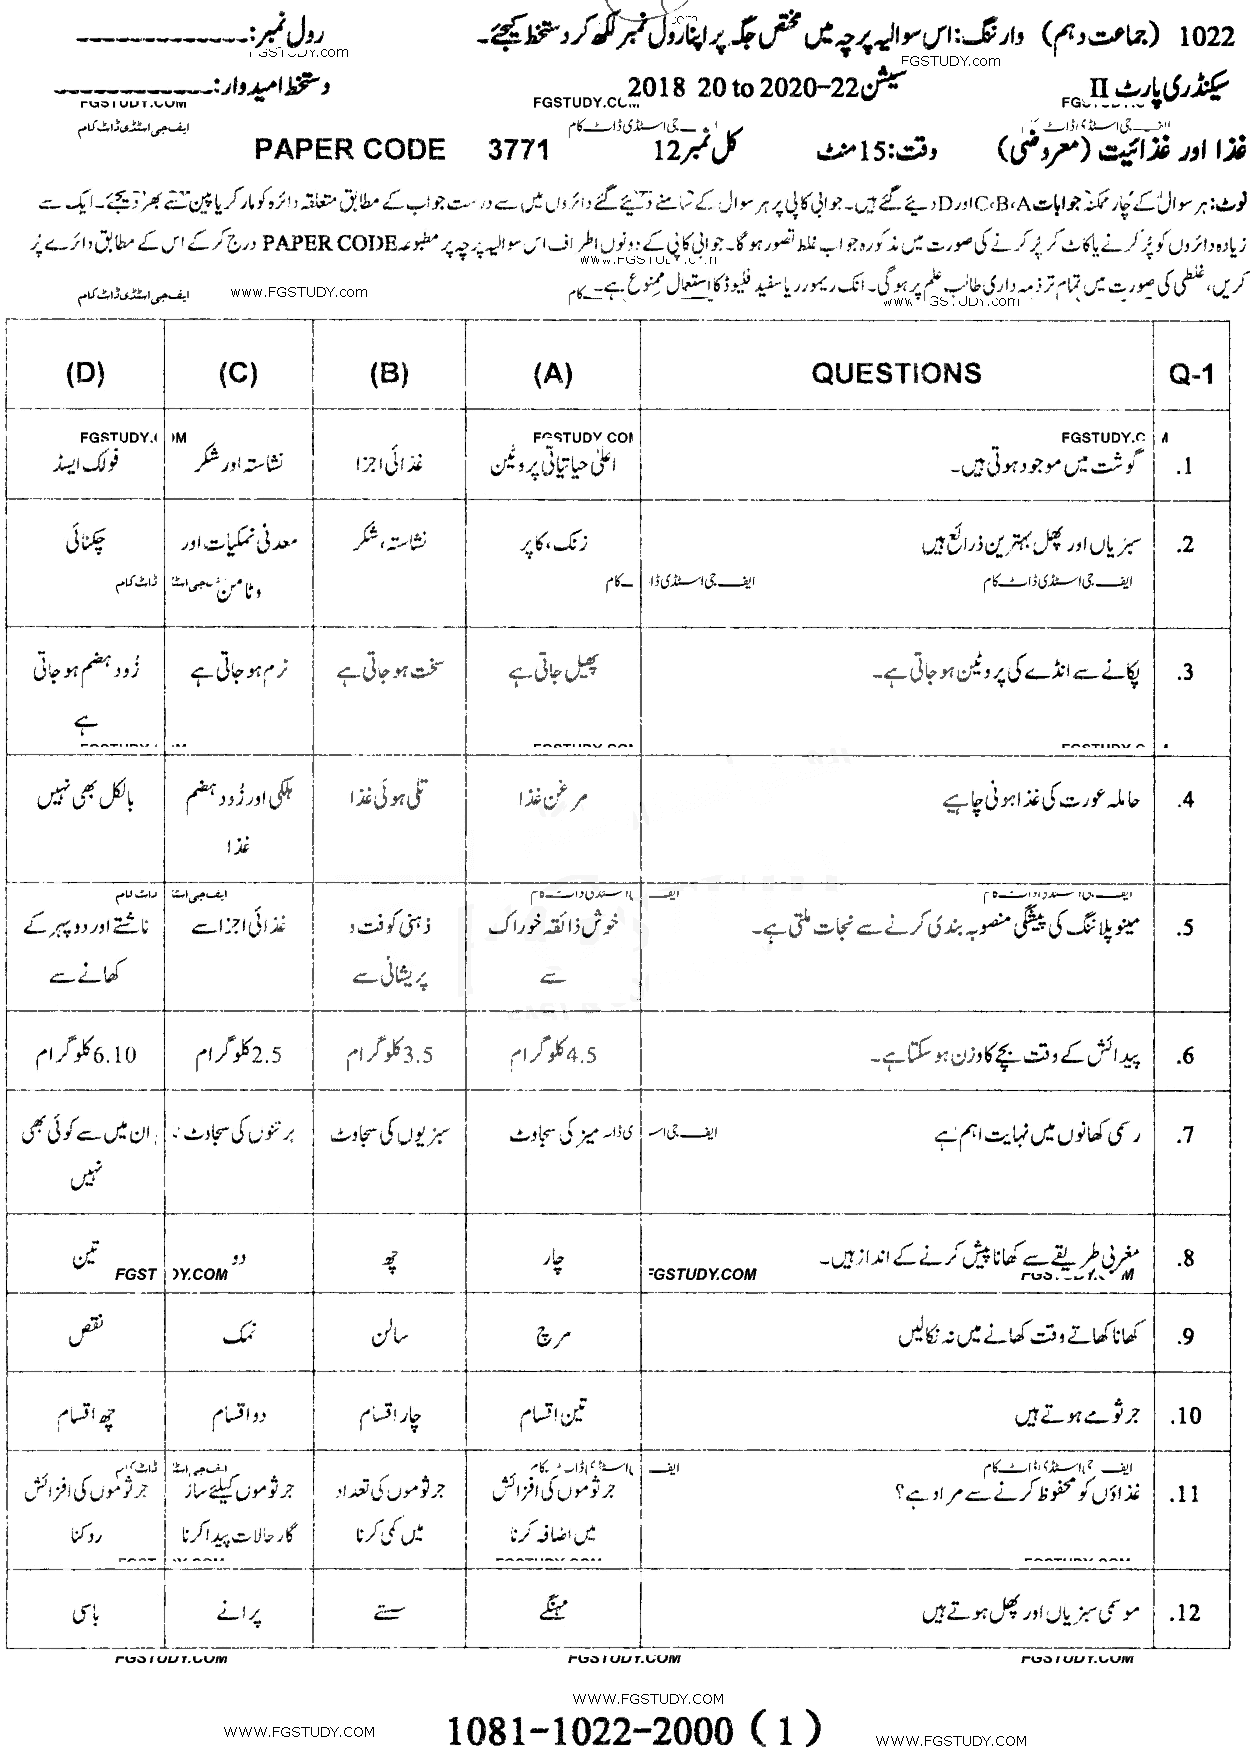 1022 (جماعت دہم) وارننگ: اس سوالیہ پرچہ میں مختص جگہ پر اپنا رول نمبر لکھ کر دستخط کیجئے۔ رول نمبر:
FGSTUDY.com
سیکنڈری پارٹ II سیشن 22-2020 to 20 2018 دستخط امیدوار:
غذا اور غذائیت (معروضی) وقت: 15 منٹ کل نمبر 12 PAPER CODE 3771
نوٹ: ہر سوال کے چار ممکنہ جوابات C، B، A اور D دیئے گئے ہیں۔ جوابی کاپی پر ہر سوال کے سامنے دیئے گئے دائروں میں سے درست جواب کے مطابق متعلقہ دائرہ کو مارکر یا پین سے بھر دیجئے۔ ایک سے
زیادہ دائروں کو پُر کرنے یا کاٹ کر پُر کرنے کی صورت میں مذکورہ جواب غلط تصور ہو گا۔ جوابی کاپی کے دونوں اطراف اس سوالیہ پرچہ پر مطبوعہ PAPER CODE درج کر کے اس کے مطابق دائرے پُر
کریں، غلطی کی صورت میں تمام تر ذمہ داری طالب علم پر ہو گی۔ انک ریمورر یا سفید فلیوڈ کا استعمال ممنوع ہے۔
WWW.FGSTUDY.com
Q-1 QUESTIONS (A) (B) (C) (D)
1. گوشت میں موجود ہوتی ہیں۔ اعلیٰ حیاتیاتی پروٹین غذائی اجزا نشاستہ اور شکر فولک ایسڈ
2. سبزیاں اور پھل بہترین ذرائع ہیں زنک، کاپر نشاستہ، شکر معدنی نمکیات اور چکنائی
وٹامن
ایف جی اسٹڈی ڈاٹ کام
3. پکانے سے انڈے کی پروٹین ہو جاتی ہے۔ پھیل جاتی ہے سخت ہو جاتی ہے نرم ہو جاتی ہے زُود ہضم ہو جاتی
ہے
4. حاملہ عورت کی غذا ہونی چاہیے مرغن غذا تلی ہوئی غذا ہلکی اور زُود ہضم بالکل بھی نہیں
غذا
5. مینو پلاننگ کی پیشگی منصوبہ بندی کرنے سے نجات ملتی ہے۔ خوش ذائقہ خوراک ذہنی کوفت و غذائی اجزا سے ناشتے اور دوپہر کے
سے پریشانی سے کھانے سے
6. پیدائش کے وقت بچے کا وزن ہو سکتا ہے۔ 4.5 کلوگرام 3.5 کلوگرام 2.5 کلوگرام 6.10 کلوگرام
7. رسمی کھانوں میں نہایت اہم ہے میز کی سجاوٹ سبزیوں کی سجاوٹ برتنوں کی سجاوٹ ان میں سے کوئی بھی
نہیں
8. مغربی طریقے سے کھانا پیش کرنے کے انداز ہیں۔ چار چھ دو تین
FGSTUDY.COM
9. کھانا کھاتے وقت کھانے میں نہ نکالیں مرچ سالن نمک نقص
10. جرثومے ہوتے ہیں تین اقسام چار اقسام دو اقسام چھ اقسام
11. غذاؤں کو محفوظ کرنے سے مراد ہے؟ جرثوموں کی افزائش جرثوموں کی تعداد جرثوموں کیلئے ساز جرثوموں کی افزائش
میں اضافہ کرنا میں کمی کرنا گار حالات پیدا کرنا روکنا
12. موسمی سبزیاں اور پھل ہوتے ہیں مہنگے سستے پرانے باسی
WWW.FGSTUDY.COM
WWW.FGSTUDY.COM 1081-1022-2000 (1) WWW.FGSTUDY.COM